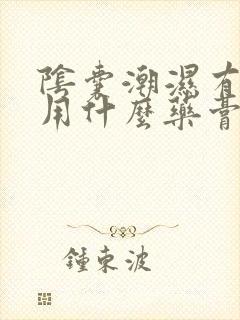 陰囊潮濕有
用什麼藥膏
鍾東波